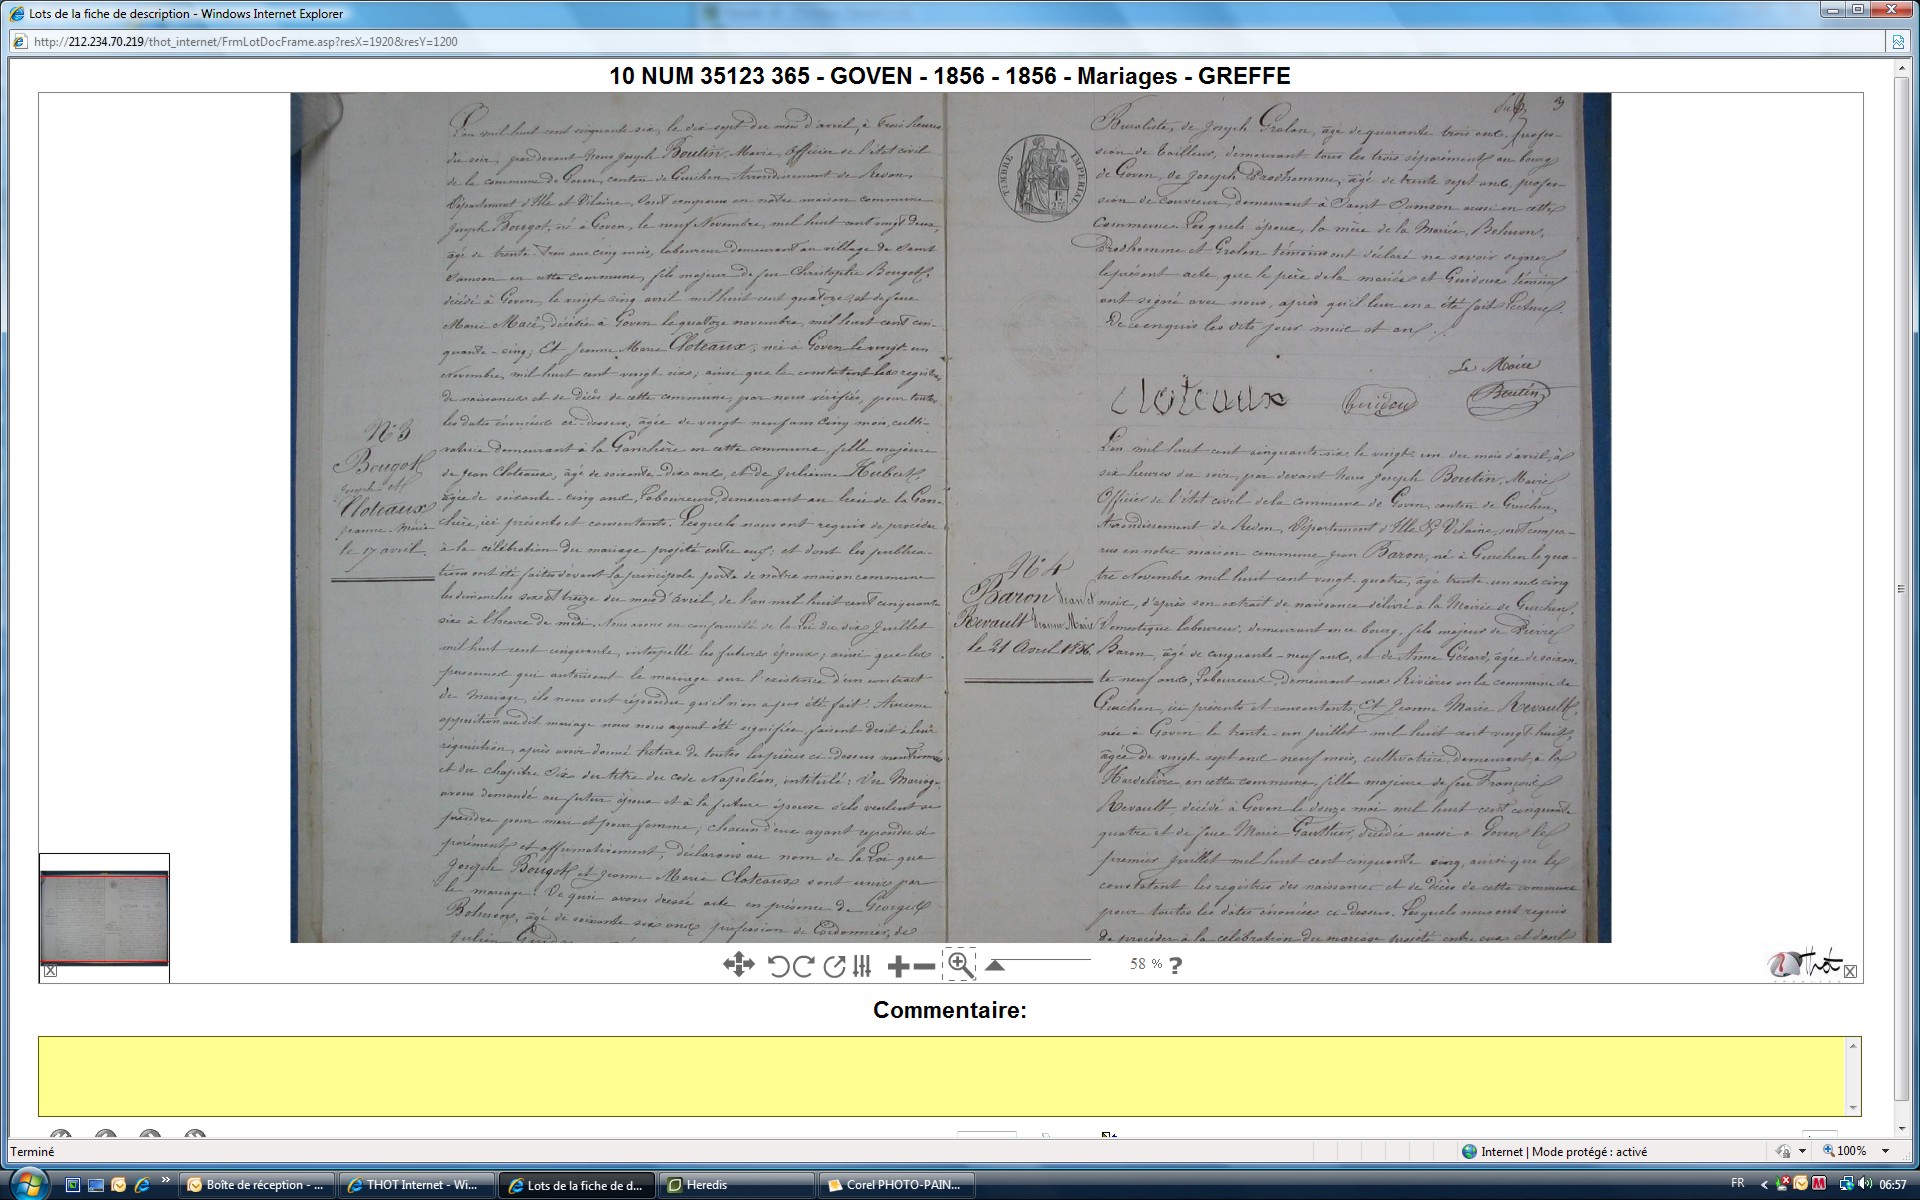 Lots de la fiche de description - Windows Internet Explorer
http://212.234.70.219/thot_internet/FrmLotDocFrame.asp?resX=1920&resY=1200
10 NUM 35123 365 - GOVEN - 1856 - 1856 - Mariages - GREFFE
L'an mil huit cent cinquante six, le dix sept du mois d'avril, à trois heures
du soir, par devant Nous Joseph Boutin, Maire, Officier de l'état civil
de la commune de Goven, canton de Guichen, Arrondissement de Redon,
Département d'Ille et Vilaine, Sont comparus en nôtre maison commune
Joseph Bougot, né à Goven, le neuf Novembre, mil huit cent vingt deux,
âgé de trente trois ans cinq mois, laboureur demeurant au village de Saint
Samson en cette commune, fils majeur de feu Christophe Bougot,
décédé à Goven, le vingt cinq avril mil huit cent quatorze, et de feue
Marie Macé, décédée à Goven le quatorze novembre, mil huit cent cin-
quante-cinq; Et Jeanne Marie Cloteaux, née à Goven le vingt un
Novembre, mil huit cent vingt six; ainsi que le constatent les registres
de naissances et de décès de cette commune, par nous vérifiés, pour toutes
les dates énoncées ci-dessus, âgée de vingt neuf ans cinq mois, culti-
vatrice demeurant à la Ganchère en cette commune, fille majeure
de Jean Cloteaux, âgé de soixante-dix ans, et de Julienne Hubert,
âgée de soixante-cinq ans, Laboureurs, demeurant au lieu de la Gan-
chère, ici présents et consentants. Lesquels nous ont requis de procéder
à la célébration du mariage projeté entre eux; et dont les publica-
tions ont été faites devant la principale porte de nôtre maison commune
les dimanches six et treize du mois d'avril, de l'an mil huit cent cinquante
six à l'heure de midi. Nous avons en conformité de la Loi du dix Juillet
mil huit cent cinquante, interpellé les futurs époux; ainsi que les
personnes qui autorisent le mariage sur l'existence d'un contrat
de mariage, ils nous ont répondu qu'il n'en a pas été fait. Aucune
opposition audit mariage nous ayant été signifiée, faisant droit à leur
réquisition, après avoir donné lecture de toutes les pièces ci-dessus mentionnées
et du chapitre Six du titre du code Napoléon, intitulé: Du Mariage,
avons demandé au futur époux et à la future épouse s'ils veulent se
prendre pour mari et pour femme; chacun d'eux ayant répondu sé-
parément et affirmativement, déclarons au nom de la Loi que
Joseph Bougot et Jeanne Marie Cloteaux sont unis par
le mariage. De quoi avons dressé acte en présence de Georges
âgé de soixante six ans, profession de Cordonnier, de
Julien
N° 3
Bougot
Joseph et
Cloteaux
Jeanne-Marie
le 17 avril.
TIMBRE IMPERIAL
3
Buraliste, de Joseph Gralan, âgé de quarante trois ans, profes-
sion de tailleur, demeurant tous les trois séparément au bourg
de Goven, de Joseph Prodhomme, âgé de trente sept ans, profes-
sion de couvreur, demeurant à Saint Samson aussi en cette
Commune. Lesquels époux, la mère de la Mariée,
Prodhomme et Gralan témoins ont déclaré ne savoir signer
le présent acte, que le père de la mariée et Guidoux témoin
ont signé avec nous, après qu'il leur en a été fait lecture.
De ce enquis les dits jour mois et an.
Le Maire
Cloteaux
Boutin
L'an mil huit cent cinquante-six le vingt un du mois d'avril, à
six heures du soir, par devant Nous Joseph Boutin, Maire
Officier de l'état civil de la commune de Goven, canton de Guichen,
Arrondissement de Redon, Département d'Ille & Vilaine, sont compa-
rus en notre maison commune Jean Baron, né à Guichen le qua-
tre Novembre mil huit cent vingt-quatre, âgé trente un ans cinq
mois, d'après son extrait de naissance délivré à la Mairie de Guichen,
Domestique laboureur, demeurant en ce bourg, fils majeur de Pierre
Baron, âgé de cinquante-neuf ans, et de Anne Gérard, âgée de soixan-
te neuf ans, Laboureurs, demeurant aux Rivières en la commune de
Guichen, ici présents et consentants, Et Jeanne Marie Revault,
née à Goven le trente-un juillet mil huit cent vingt huit,
âgée de vingt-sept ans neuf mois, cultivatrice, demeurant à la
Hardelière en cette commune, fille majeure de feu François
Revault, décédé à Goven le douze mai mil huit cent cinquante
quatre et de feue Marie Gauthier, décédée aussi à Goven le
premier Juillet mil huit cent cinquante cinq, ainsi que le
constatent les registres des naissances et de décès de cette commune
pour toutes les dates énoncées ci-dessus. Lesquels nous ont requis
de procéder à la célébration du mariage projeté entre eux et dont
N° 4
Baron Jean et
Revault Jeanne-Marie
le 21 Avril 1856.
58 % ?
Thot
Commentaire:
Terminé
Internet | Mode protégé : activé
100%
Boîte de réception - ...
THOT Internet - Wi...
Lots de la fiche de d...
Heredis
Corel PHOTO-PAIN...
FR
06:57